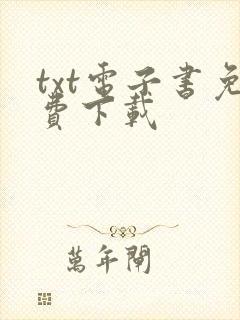 txt電子書免
費下載
萬年閘